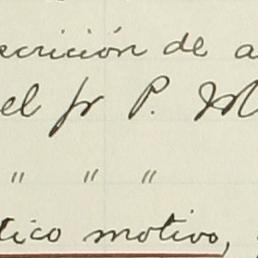 scrición de a
el fr P. M
" " "
tico motivo,